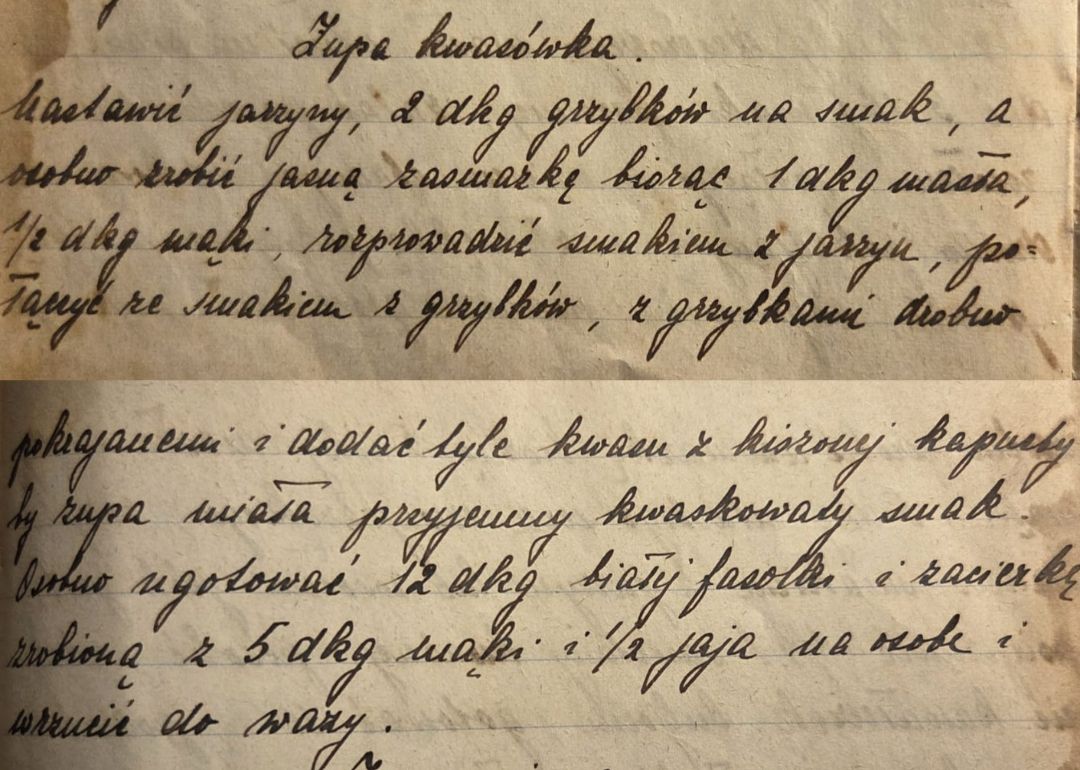 Zupa kwasówka.
Nastawić jarzyny, 2 dkg grzybków na smak, a
osobno zrobić jasną zasmażkę biorąc 1 dkg masła,
1/2 dkg mąki, rozprowadzić smakiem z jarzyn, po=
łączyć ze smakiem z grzybków, z grzybkami drobno
pokrajanemi i dodać tyle kwasu z kiszonej kapusty
by zupa miała przyjemny kwaskowaty smak.
Osobno ugotować 12 dkg białej fasolki i zacierkę
zrobioną z 5 dkg mąki i 1/2 jaja na osobę i
wrzucić do wazy.